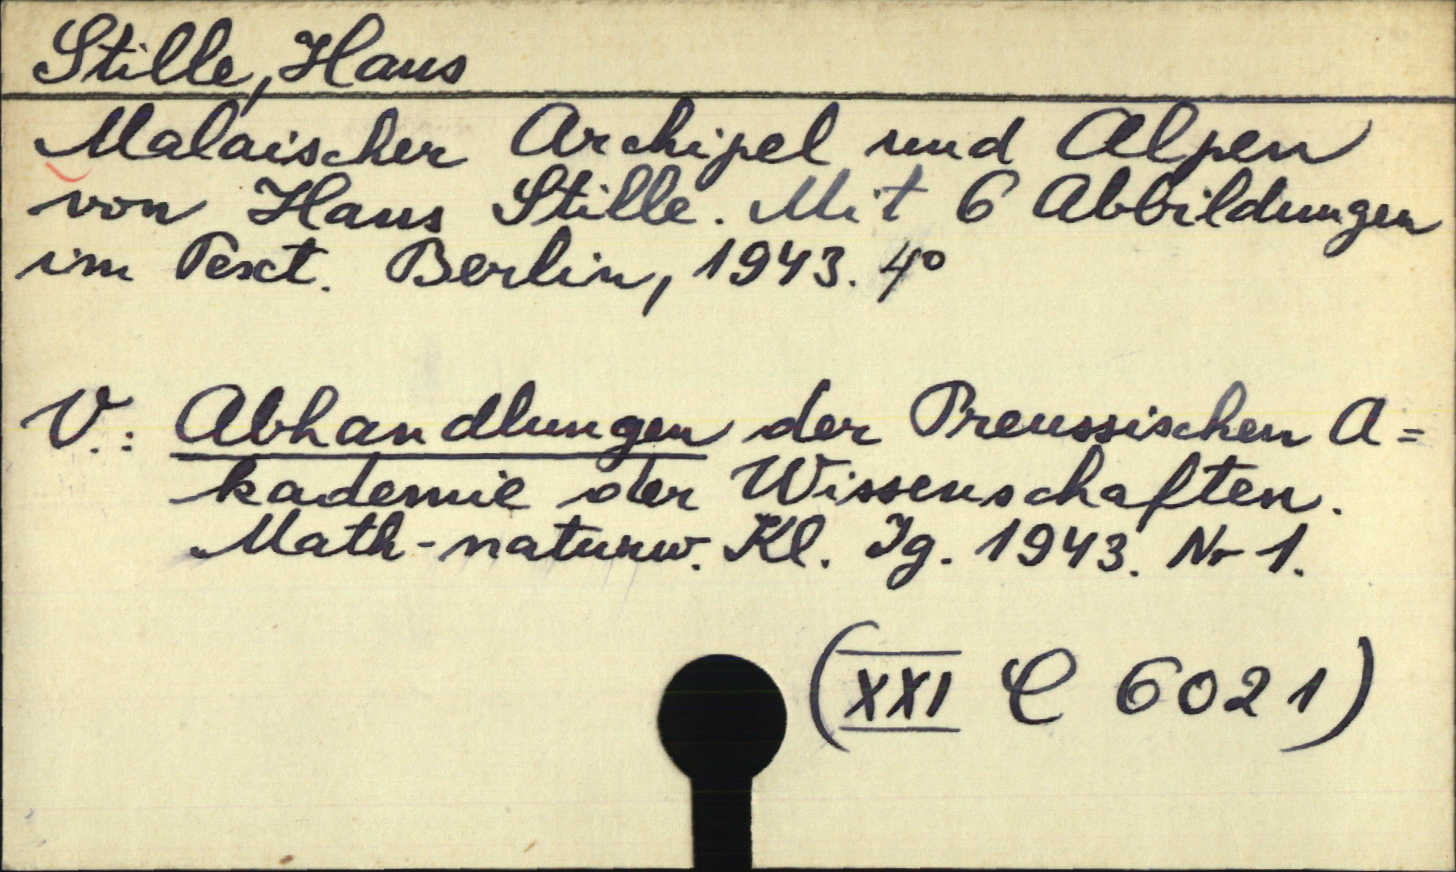 Stille, Hans
Malaischer Archipel und Alpen
von Hans Stille. Mit 6 Abbildungen
im Text. Berlin, 1943. 4°
V.: Abhandlungen der Preussischen A=
kademie der Wissenschaften.
Math-naturw. Kl. Jg. 1943. Nr 1.
(XXI C 6021)